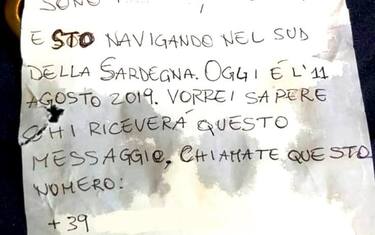 SONO
E STO NAVIGANDO NEL SUD
DELLA SARDEGNA. OGGI É L'11
AGOSTO 2019. VORREI SAPERE
CHI RICEVERÁ QUESTO
MESSAGGIO, CHIAMATE QUESTO
NUMERO:
+39